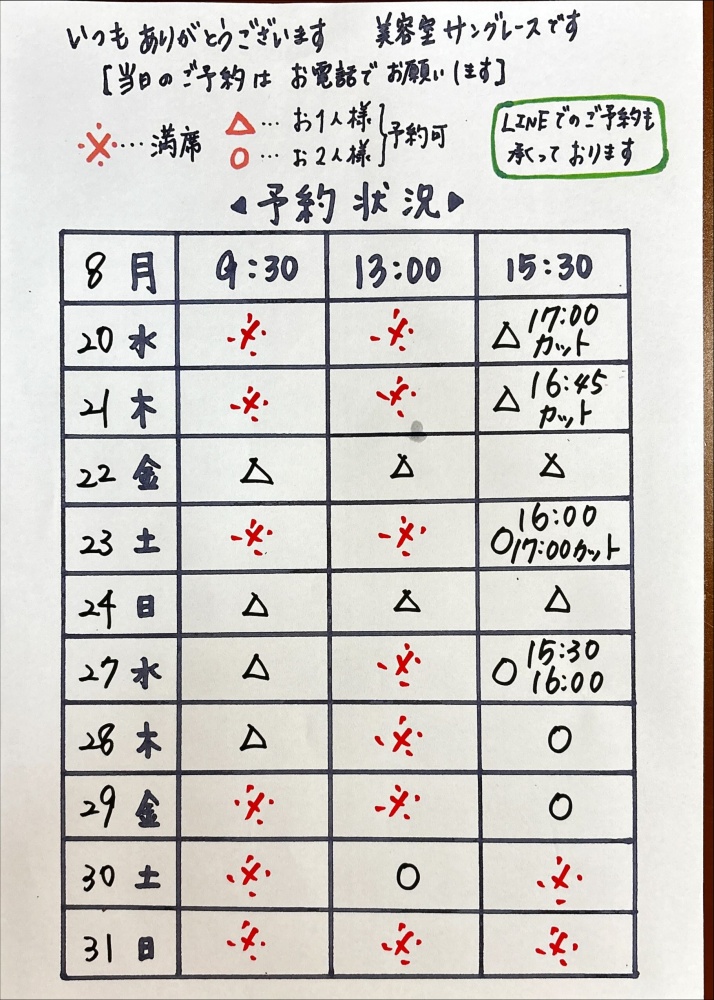 いつもありがとうございます 美容室サングレースです
[当日のご予約はお電話でお願いします]
※…満席
△…お1人様
○…お2人様
予約可
LINEでのご予約も
承っております
◀予約状況▶
8月 9:30 13:00 15:30
20 水 ※ ※ △ 17:00 カット
21 木 ※ ※ △ 16:45 カット
22 金 △ △ △
23 土 ※ ※ ○ 16:00 17:00カット
24 日 △ △ △
27 水 △ ※ ○ 15:30 16:00
28 木 △ ※ ○
29 金 ※ ※ ○
30 土 ※ ○ ※
31 日 ※ ※ ※